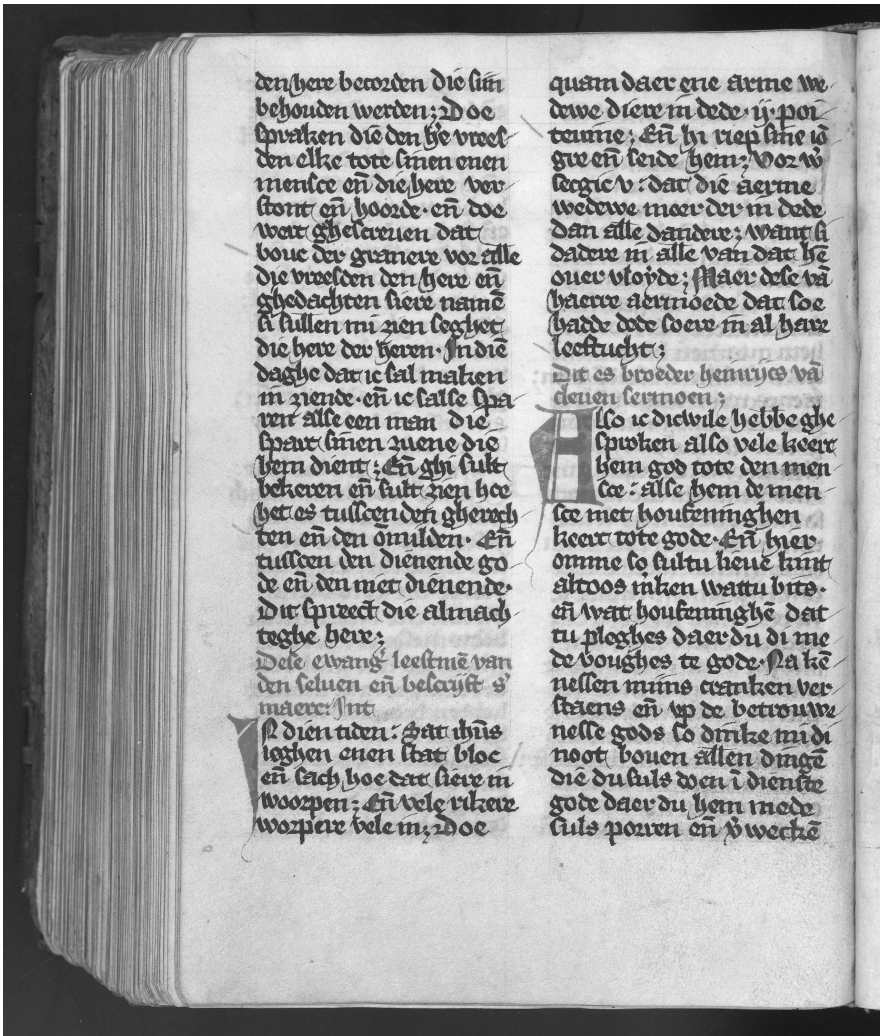 den here becorden die sijn
behouden werden; Doe
spraken die den h'e vrees-
den elke tote sinen enen
mensce en̄ die here ver
stont en̄ hoorde· en̄ doe
wert ghescreuen dat
bouc der granere vor alle
die vreesden den here en̄
ghedachten siere namē
si sullen mi zien seghet
die here der heren· In diē
daghe dat ic sal maken
in ziende· en̄ ic salse spa
ren alse een man die
spart sinen zuene die
hem dient; En̄ ghi sult
bekeren en̄ sult zien hoe
het es tusscen den gherech
ten en̄ den ōmilden· En̄
tusscen den dienende go
de en̄ den niet dienende·
Dit spreect die almach
teghe here;
Dese ewang' leestmē van
den seluen en̄ bescrijft s'
maerc: Int
IN dien tiden: Sat ihūs
ieghen enen stat bloc
en̄ sach hoe dat siere in
woorpen; En̄ vele rikere
worpere vele in; Doe
quam daer ene arme we
dewe diere in dede· ij· poi
teuine; En̄ hi riep sine iō
gre en̄ seide hem; Vor w'
secgic v: dat die aerme
wedewe meer der in dede
dan alle dandere; want si
dadere in alle van dat hē
ouer vloyde; Maer dese vā
haerre aermoede dat soe
hadde dede soere in al hare
leeftucht;
Dit es broeder heinrijcs vā
cleuen sermoen;
Also ic dicwile hebbe ghe
sproken also vele keert
hem god tote den men
sce: alse hem de men
sce met houfeninghen
keert tote gode· En̄ hier
omme so sultu lieue kint
altoos m'ken wattu bits·
en̄ wat houfeninghē dat
tu pleghes daer du di me
de voughes te gode· Na kē
nessen mijns cranken ver
staens en̄ vp de betrouwe
nesse gods so dinke mi di
noot bouen allen dingē
die du suls doen ī dienste
gode daer du hem mede
suls porren en̄ v'weckē